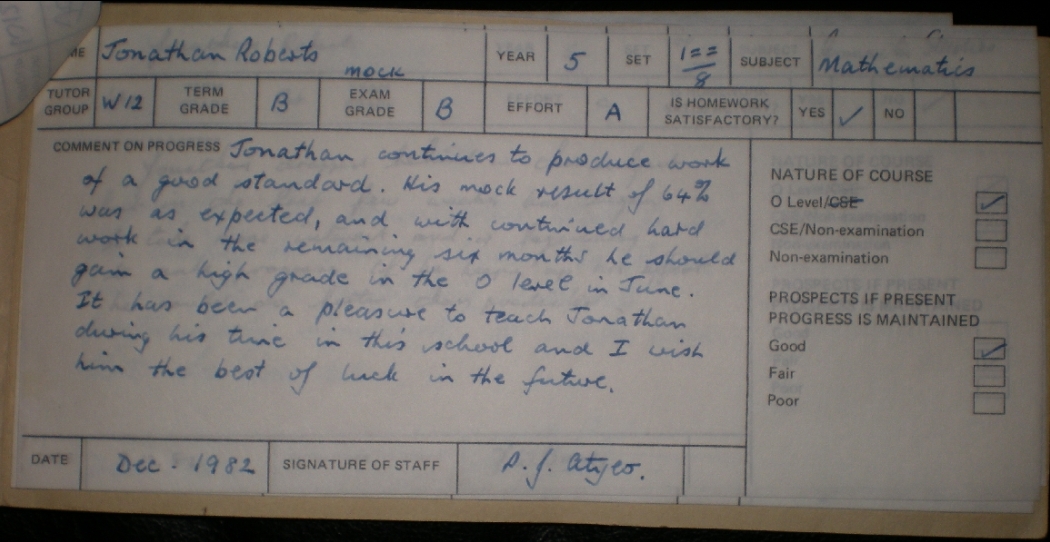 ME Jonathan Roberts YEAR 5 SET 1== / 8 SUBJECT Mathematics
mock
TUTOR GROUP W12 TERM GRADE B EXAM GRADE B EFFORT A IS HOMEWORK SATISFACTORY? YES ✓ NO
COMMENT ON PROGRESS Jonathan continues to produce work
of a good standard. His mock result of 64%
was as expected, and with continued hard
work in the remaining six months he should
gain a high grade in the O level in June.
It has been a pleasure to teach Jonathan
during his time in this school and I wish
him the best of luck in the future.
NATURE OF COURSE
O Level/CSE ✓
CSE/Non-examination
Non-examination
PROSPECTS IF PRESENT
PROGRESS IS MAINTAINED
Good ✓
Fair
Poor
DATE Dec. 1982 SIGNATURE OF STAFF